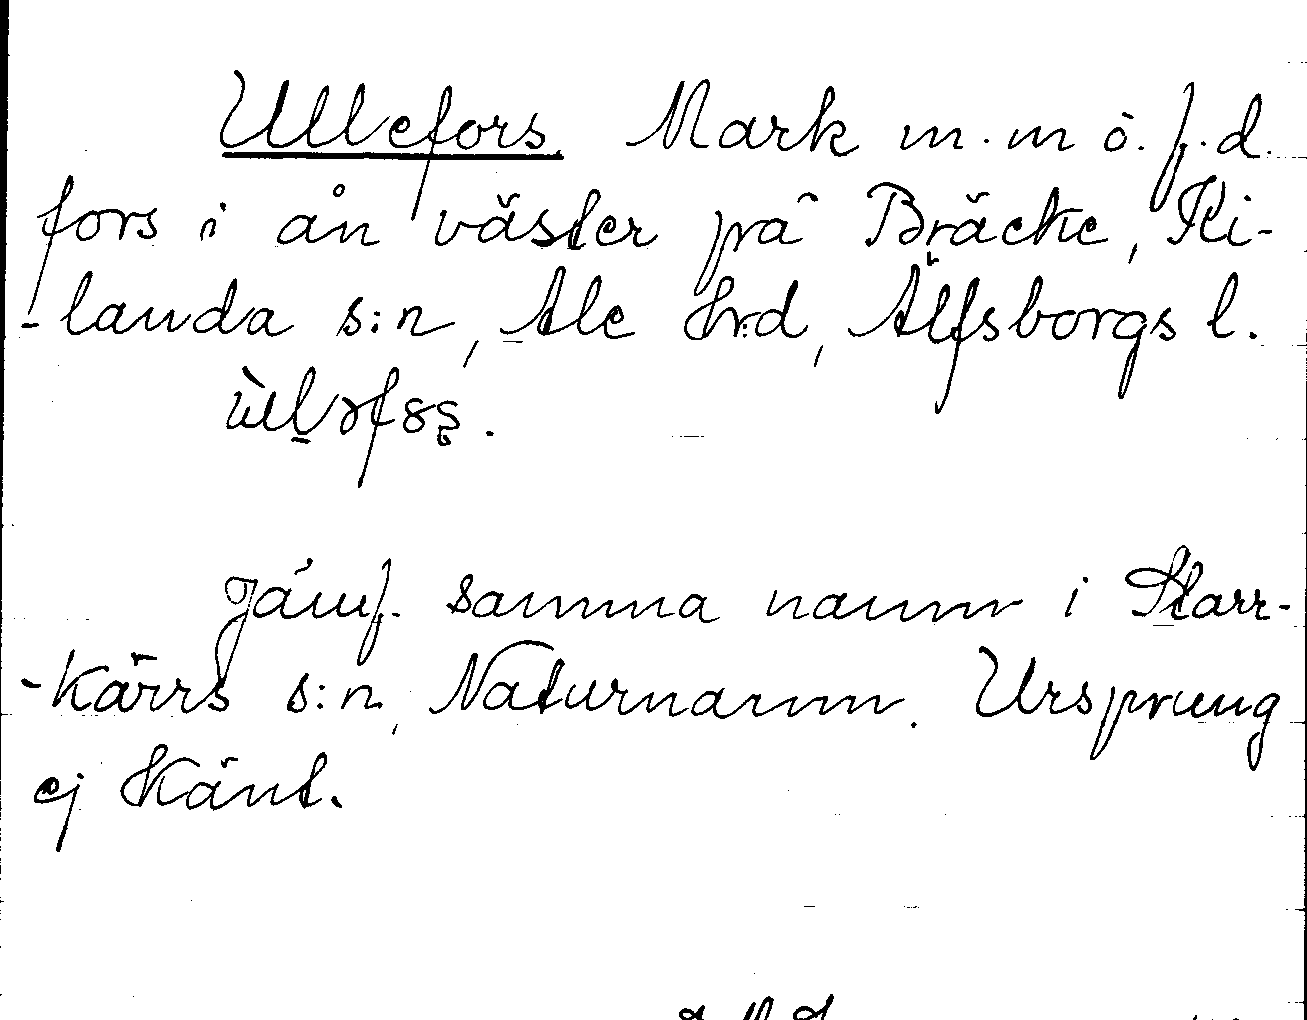 Ullefors. Mark m.m ö. f.d.
fors i ån väster på Bräcke, Ki-
-landa s:n, Ale Hrd, Älfsborgs l.
Jämf. samma namn i Starr-
-kärrs s:n, Naturnamn. Ursprung
ej känt.